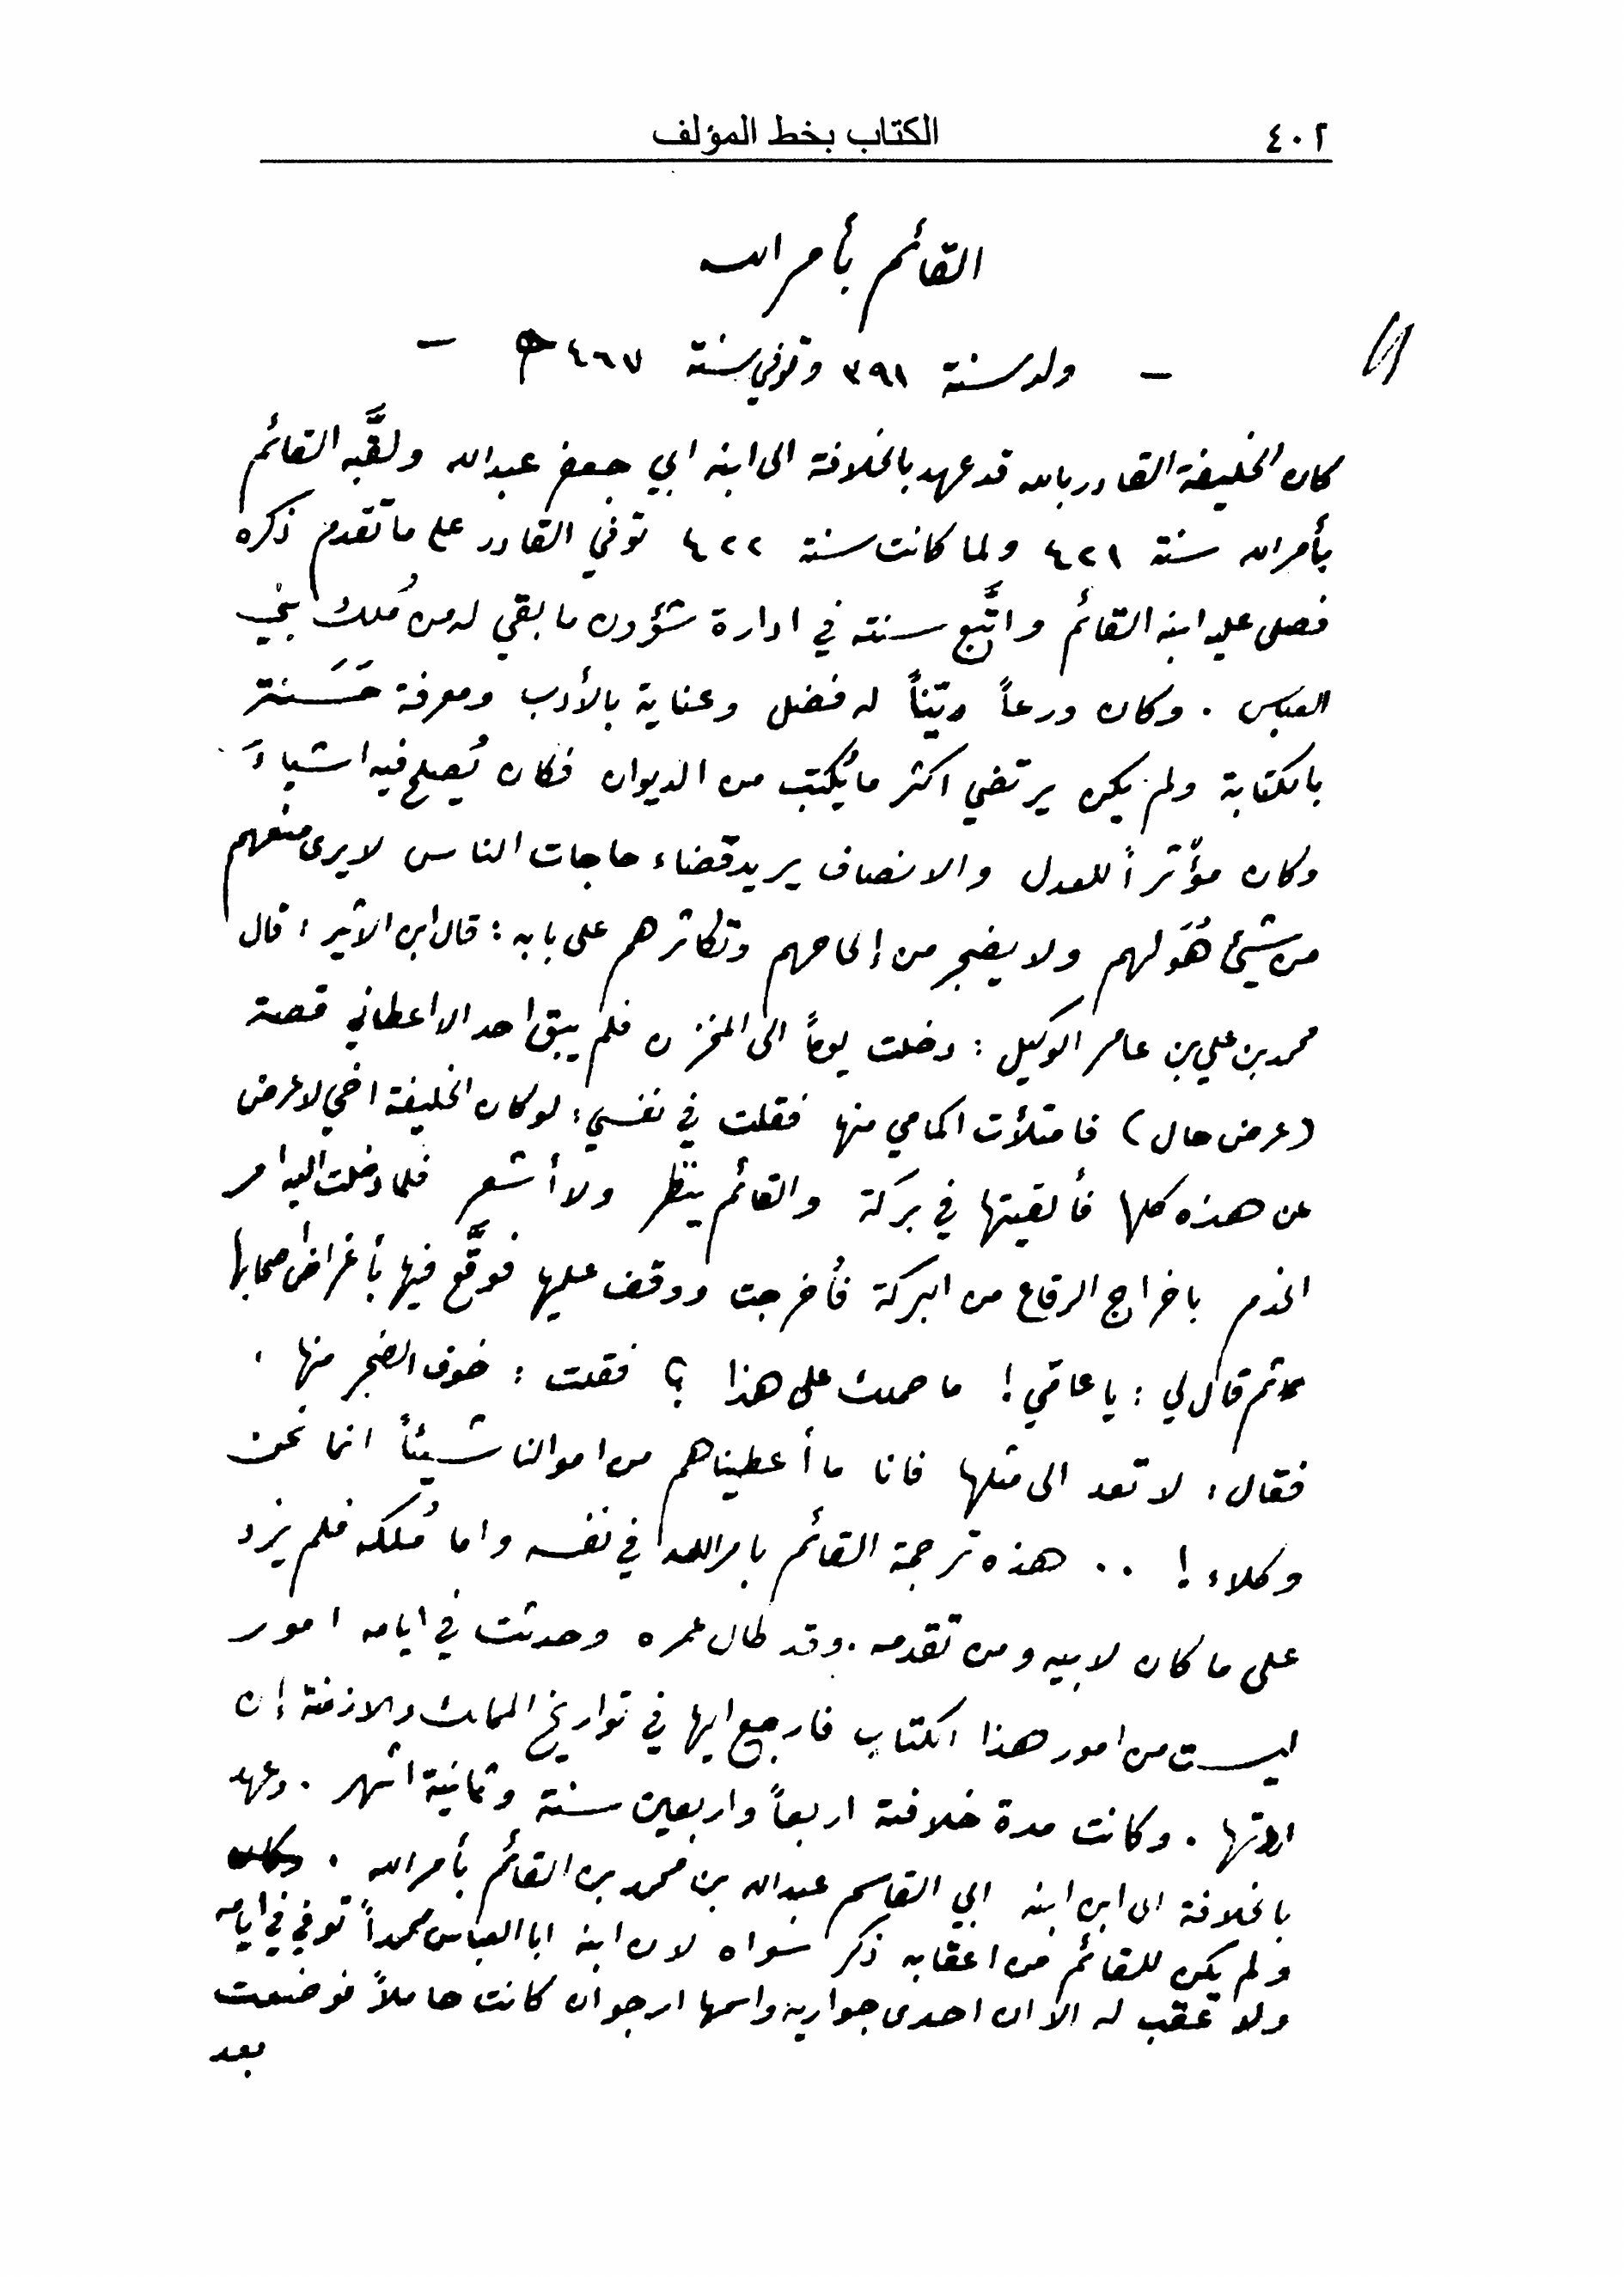 ٤٠٢ الكتاب بخط المؤلف
القائم بأمر الله
- ولد سنة ٣٩١ وتوفي سنة ٤٦٧ -
كان الخليفة القادر بالله قد عهد بالخلافة الى ابنه ابي جعفر عبدالله ولقَّبه القائم
بأمر الله سنة ٤٢١ ولما كانت سنة ٤٢٢ توفي القادر على ما تقدم ذكره
فصلى عليه ابنه القائم واتَّبع سنته في ادارة شؤون ما بقي له من مُلك بني
العباس . وكان ورعاً ديّناً له فضل وعناية بالأدب ومعرفة حَسَنة
بالكتابة ولم يكن يرتضي اكثر ما يُكتب من الديوان فكان يُصلح فيه اشياءَ
وكان مؤثراً للعدل والانصاف يريد قضاء حاجات الناس لا يرى منعهم
من شيئ هُوَ لهم ولا يضجر من إلحاحهم وتكاثرهم على بابه : قال ابن الاثير : قال
محمد بن علي بن عامر الوكيل : دخلت يوماً الى المخزن فلم يبق احد الا اعطاني قصة
(عرض حال) فامتلأت اكمامي منها فقلت في نفسي : لو كان الخليفة اخي لاعرض
عن هذه كلها فألقيتها في بركة والقائم ينظر ولا أشعر فلما دخلت اليه امر
الخدم باخراج الرقاع من البركة فأُخرجت ووقف عليها فوقَّع فيها بأغراض اصحابها
ثم قال لي : يا عامّي ! ما حملك على هذا ؟ فقلت : خوف الضجر منها .
فقال : لا تعد الى مثلها فانا ما أعطيناهم من اموالنا شيئاً انما نحن
وكلاء ! .. هذه ترجمة القائم بامر الله في نفسه واما مُلكه فلم يزد
على ما كان لابيه ومن تقدمه . وقد طال عمره وحدثت في ايامه امور
ليست من امور هذا الكتاب فارجع اليها في تواريخ الممالك والازمنة إن
اردتها . وكانت مدة خلافته اربعاً واربعين سنة وثمانية اشهر . وعهد
بالخلافة الى ابن ابنه ابي القاسم عبدالله بن محمد بن القائم بأمر الله .
ولم يكن للقائم من اعقابه ذكر سواه لان ابنه ابا العباس محمداً توفي في ايامه
ولا عقب له الا ان احدى جواريه واسمها ارجوان كانت حاملاً فوضعت
بعد